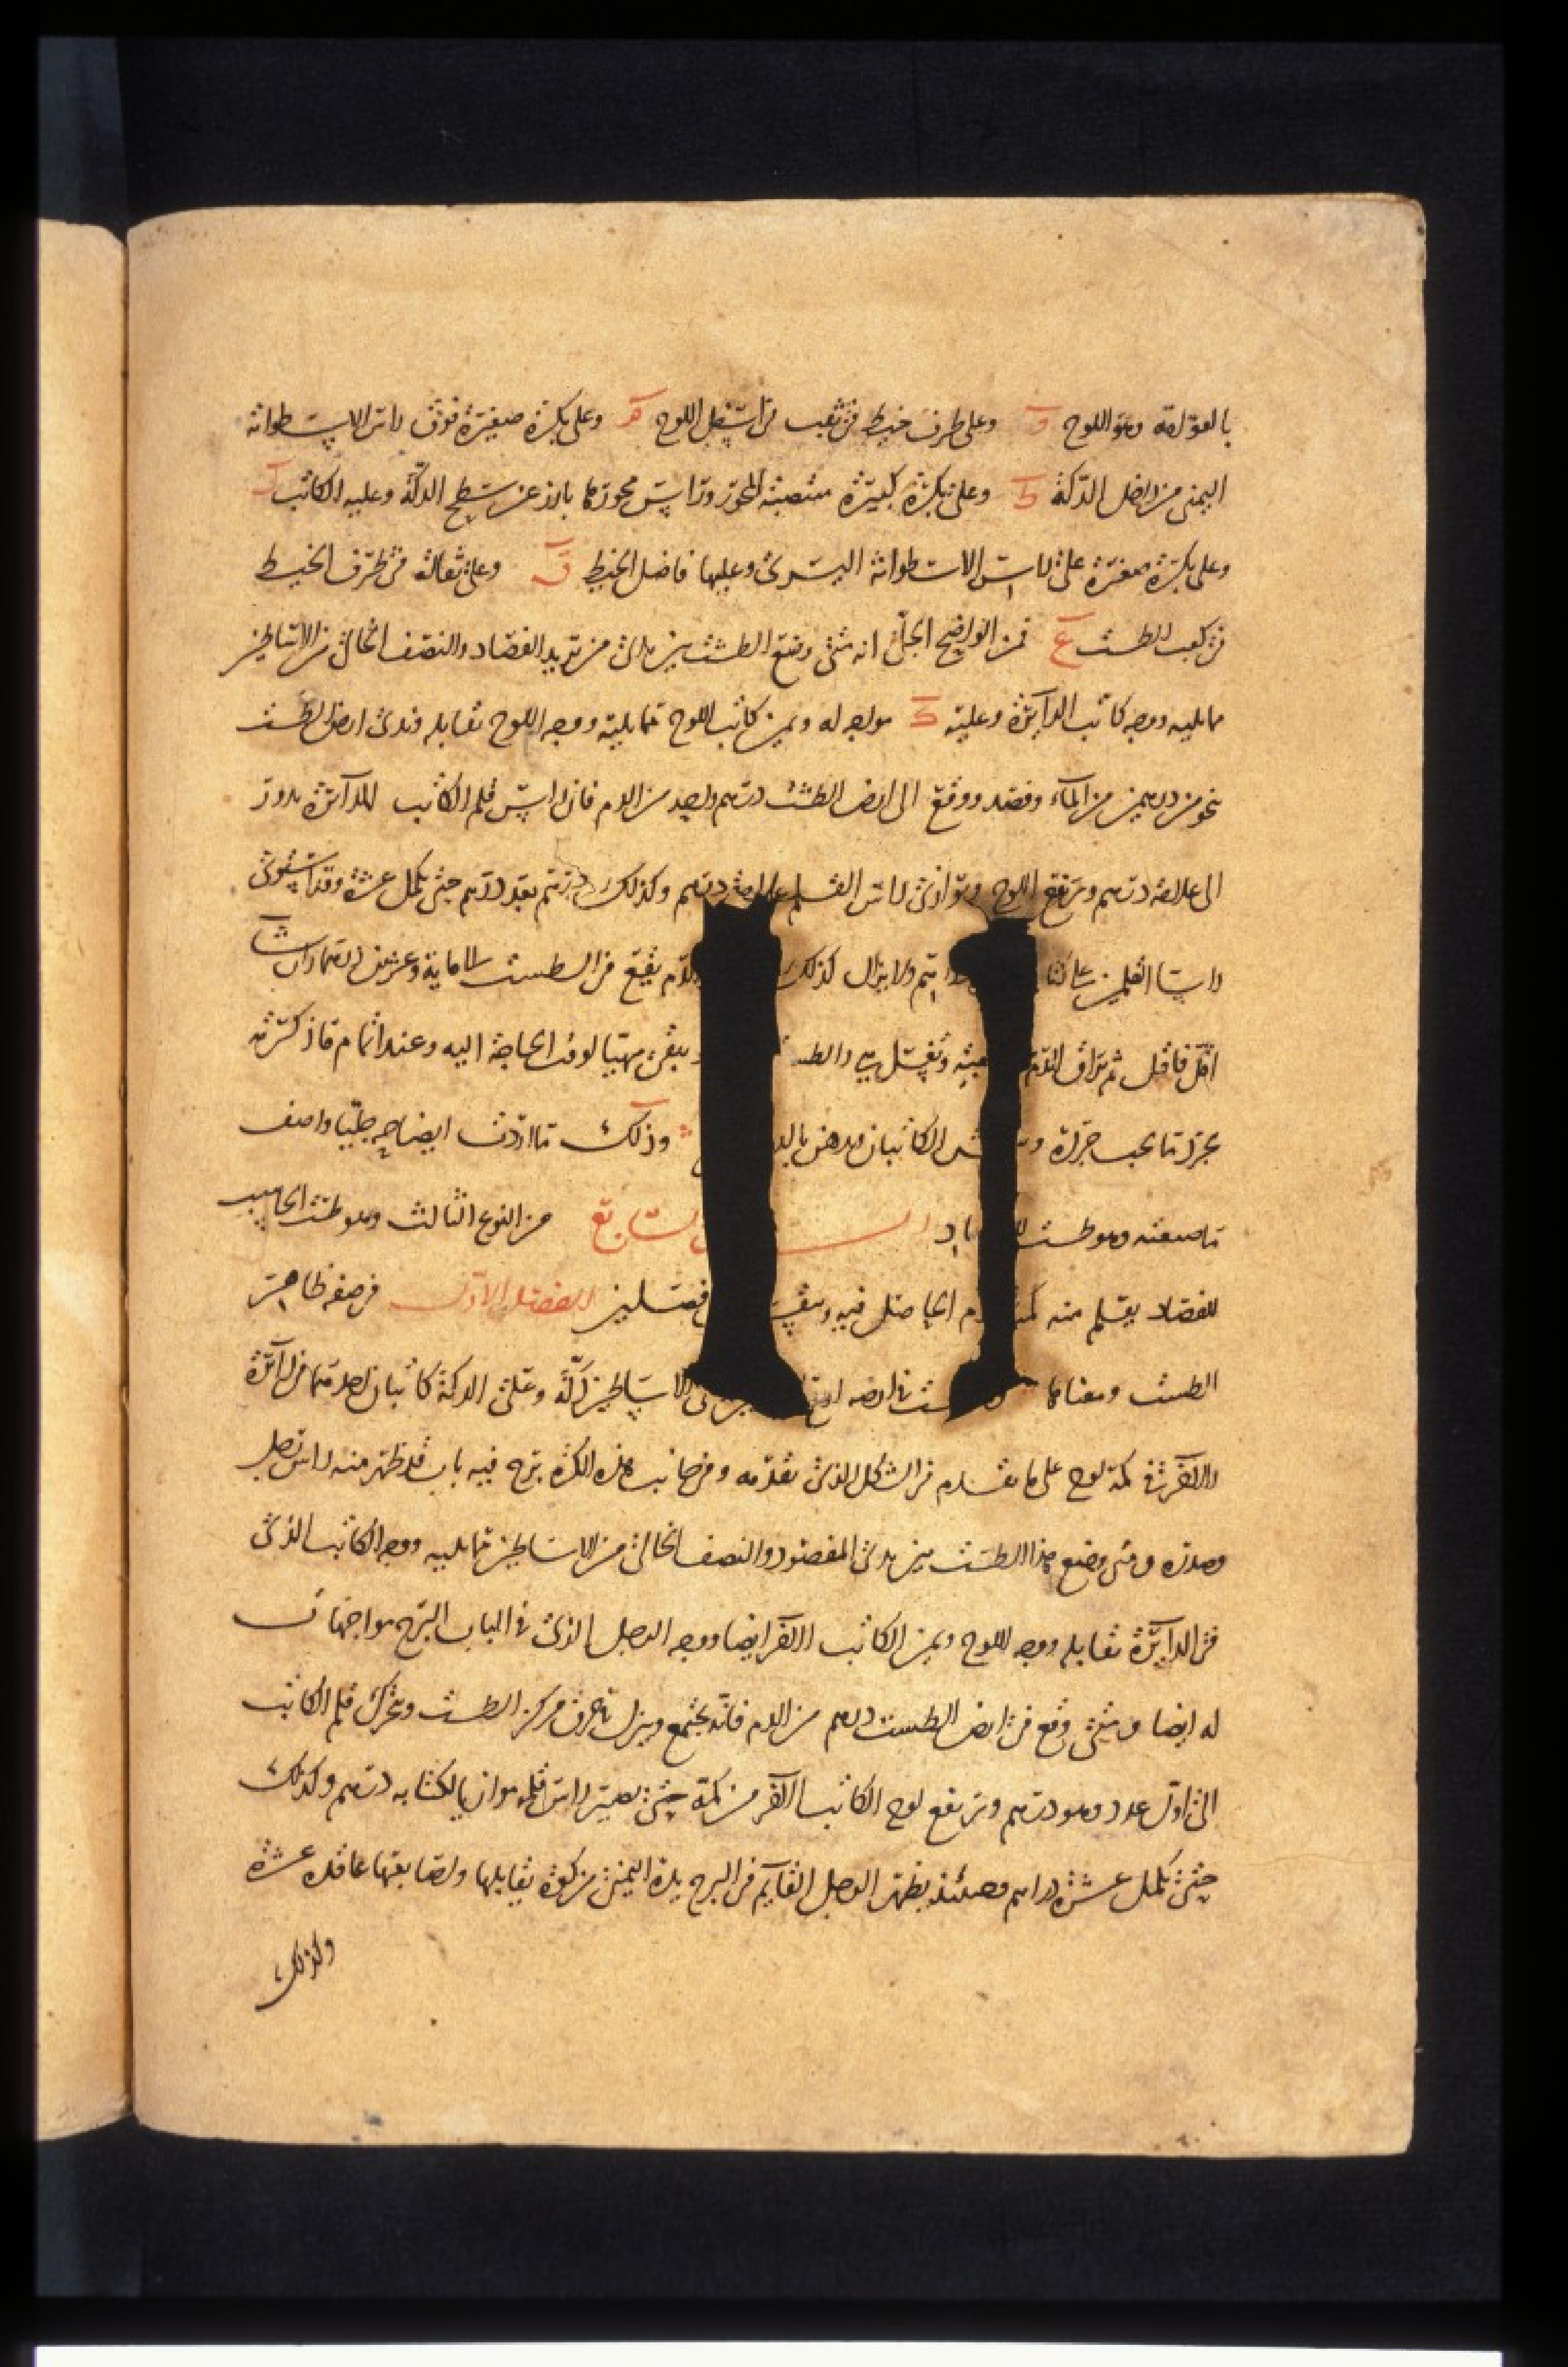 بالعوامة وهو اللوح و وعلى طرف خيط في ثقب في اسفل اللوح هـ وعلى بكرة صغيرة فوق راس الاسطوانة
اليمنى من داخل الدكة ط وعلى بكرة كبيرة منتصبة المحور وراس محورها بارز عن سطح الدكة وعليه الكاتب
وعلى بكرة صغيرة على راس الاسطوانة اليسرى وعليها فاضل الخيط ف وعلى ثقالة في طرف الخيط
في كعب الطست ع فمن الواضح الجلي انه متى وضع الطست بين يدى من يريد الفصاد والنصف الخالى من الاساطين
مما يليه ووجه كاتب الدائرة وعليه ك مواجه له ويمين كاتب اللوح مما يليه ووجه اللوح يقابله وندى ارض الطست
بنحو من درهمين من الماء وفصد ووقع الى ارض الطست درهم واحد من الدم فان راس قلم الكاتب الدائرة يدور
الى علامة درهم ويرتفع اللوح ويوازى راس القلم علامة درهم وكذلك درهم بعد درهم حتى يكمل عشرة وقد استوى
راسا القلمين على ولا يزال كذلك الدم يقع في الطست الى ماية وعشرين درهما وان شاء
اقل فاقل ثم يراق الدم ويغسل والطست ويبقى مهيا لوقت الحاجة اليه وعند اتمام ما ذكرته
يجرد ما يجب جرده الكاتبان ويدهن وذلك ما اردت ايضاحه جليا واصف
ما صنعته وهو طست الشكل السابع من النوع الثالث وهو طست الحاسب
للفصاد يعلم منه كمية الدم الحاصل فيه وينقسم فصلين الفصل الاول في صفة ظاهر
الطست ومعناها طست في ارضه الاساطين دكة وعلى الدكة كاتبان احدهما في دائرة
والاخر في كمه لوح على ما تقدم في الشكل الذى تقدمه وفي جانب هذه الدكة برج فيه باب قد ظهر منه راس رجل
وصدره ومتى وضع هذا الطست بين يدى المفصود والنصف الخالى من الاساطين مما يليه ووجه الكاتب الذى
في الدائرة يقابله ووجه اللوح ويمين الكاتب الاخر ايضا ووجه الرجل الذى في الباب البرج مواجهات
له ايضا ومتى وقع في ارض الطست درهم من الدم فانه يجتمع وينزل في خرق مركز الطست ويتحرك قلم الكاتب
الى اول عدد وهو درهم ويرتفع لوح الكاتب الاخر من كمه حتى يصير راس قلمه موازيا لكتابه درهم وكذلك
حتى يكمل عشرة دراهم وحينئذ يظهر الرجل القايم في البرج يده اليمنى من كوة يقابلها واصابعها عاقدة عشرة
وكذلك